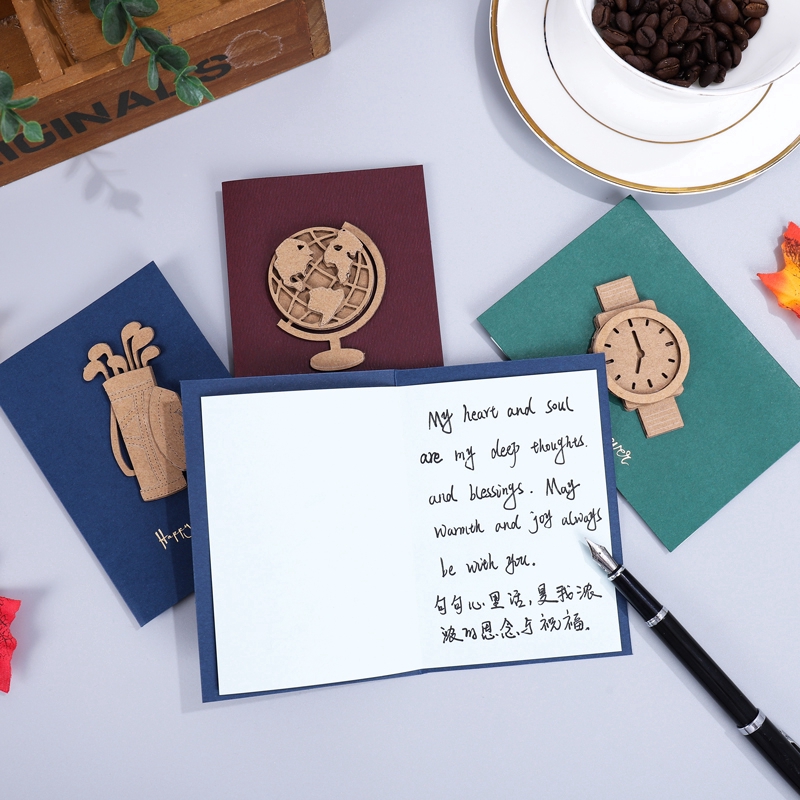 ORIGINALS
My heart and soul
are my deep thoughts.
and blessings. May
warmth and joy always
be with you.
句句心里话,是我浓
浓的思念与祝福。
Happy